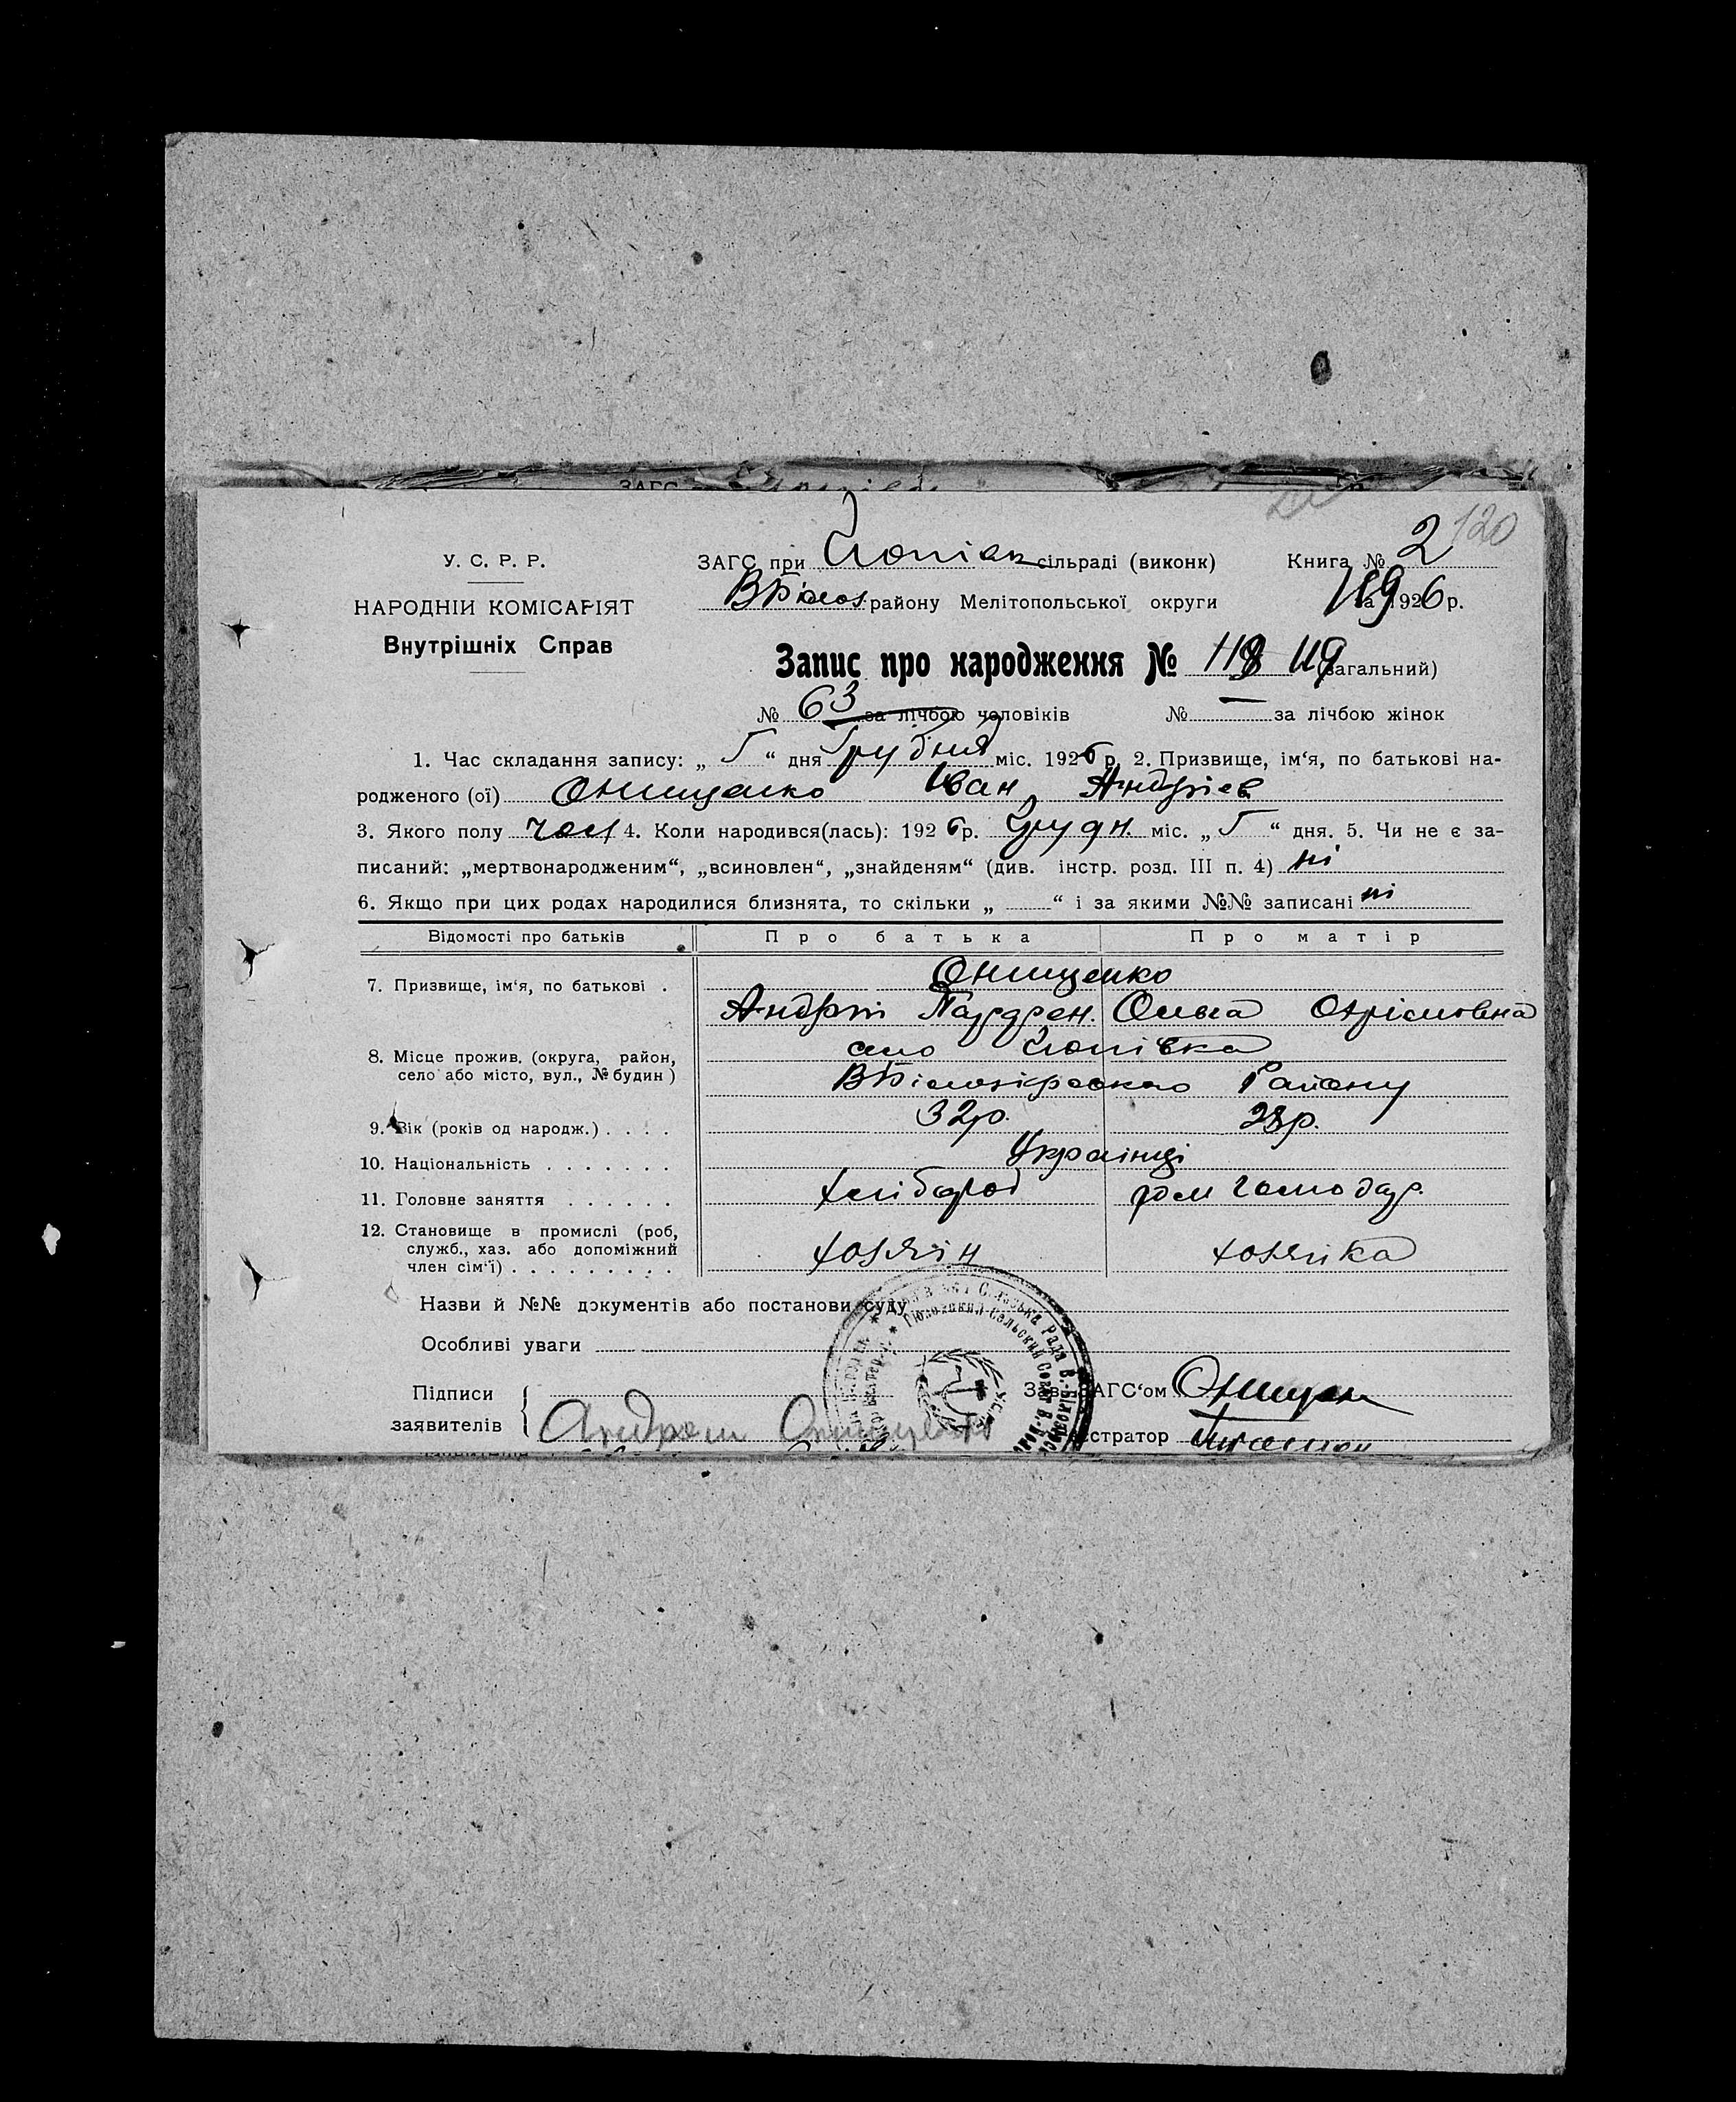 120
У. С. Р. Р.
НАРОДНІЙ КОМІСАРІЯТ
Внутрішніх Справ
ЗАГС при сільраді (виконк)
ВБілоз. району Мелітопольської округи
Книга № 2
за 1926 р.
Запис про народження № 118 119 (загальний)
№ 63 за лічбою чоловіків № — за лічбою жінок
1. Час складання запису: „ 5 “ дня Грудня міс. 1926 р. 2. Призвище, ім‘я, по батькові на-
родженого (ої) Онищенко Іван Андрієв
3. Якого полу чол 4. Коли народився(лась): 1926 р. Грудн. міс. „ 5 “ дня. 5. Чи не є за-
писаний: „мертвонародженим“, „всиновлен“, „знайденям“ (див. інстр. розд. III п. 4) ні
6. Якщо при цих родах народилися близнята, то скільки „ “ і за якими №№ записані ні
Відомості про батьків Про батька Про матір
7. Призвище, ім‘я, по батькові . Онищенко
Андрій Ольга
8. Місце прожив. (округа, район,
село або місто, вул., № будин)
село
ВБілозірського Району
9. Вік (років од народж.) . . . . 32р. 28р.
10. Національність . . . . . . . Українці
11. Головне заняття . . . . . . хлібороб дом господар.
12. Становище в промислі (роб,
служб., хаз. або допоміжний
член сім‘ї) . . . . . . . . . хозяїн хозяйка
Назви й №№ документів або постанови суду
Особливі уваги
Підписи
заявителів
Андрей Онищенко
Зав. ЗАГС‘ом Онищен
Реєстратор